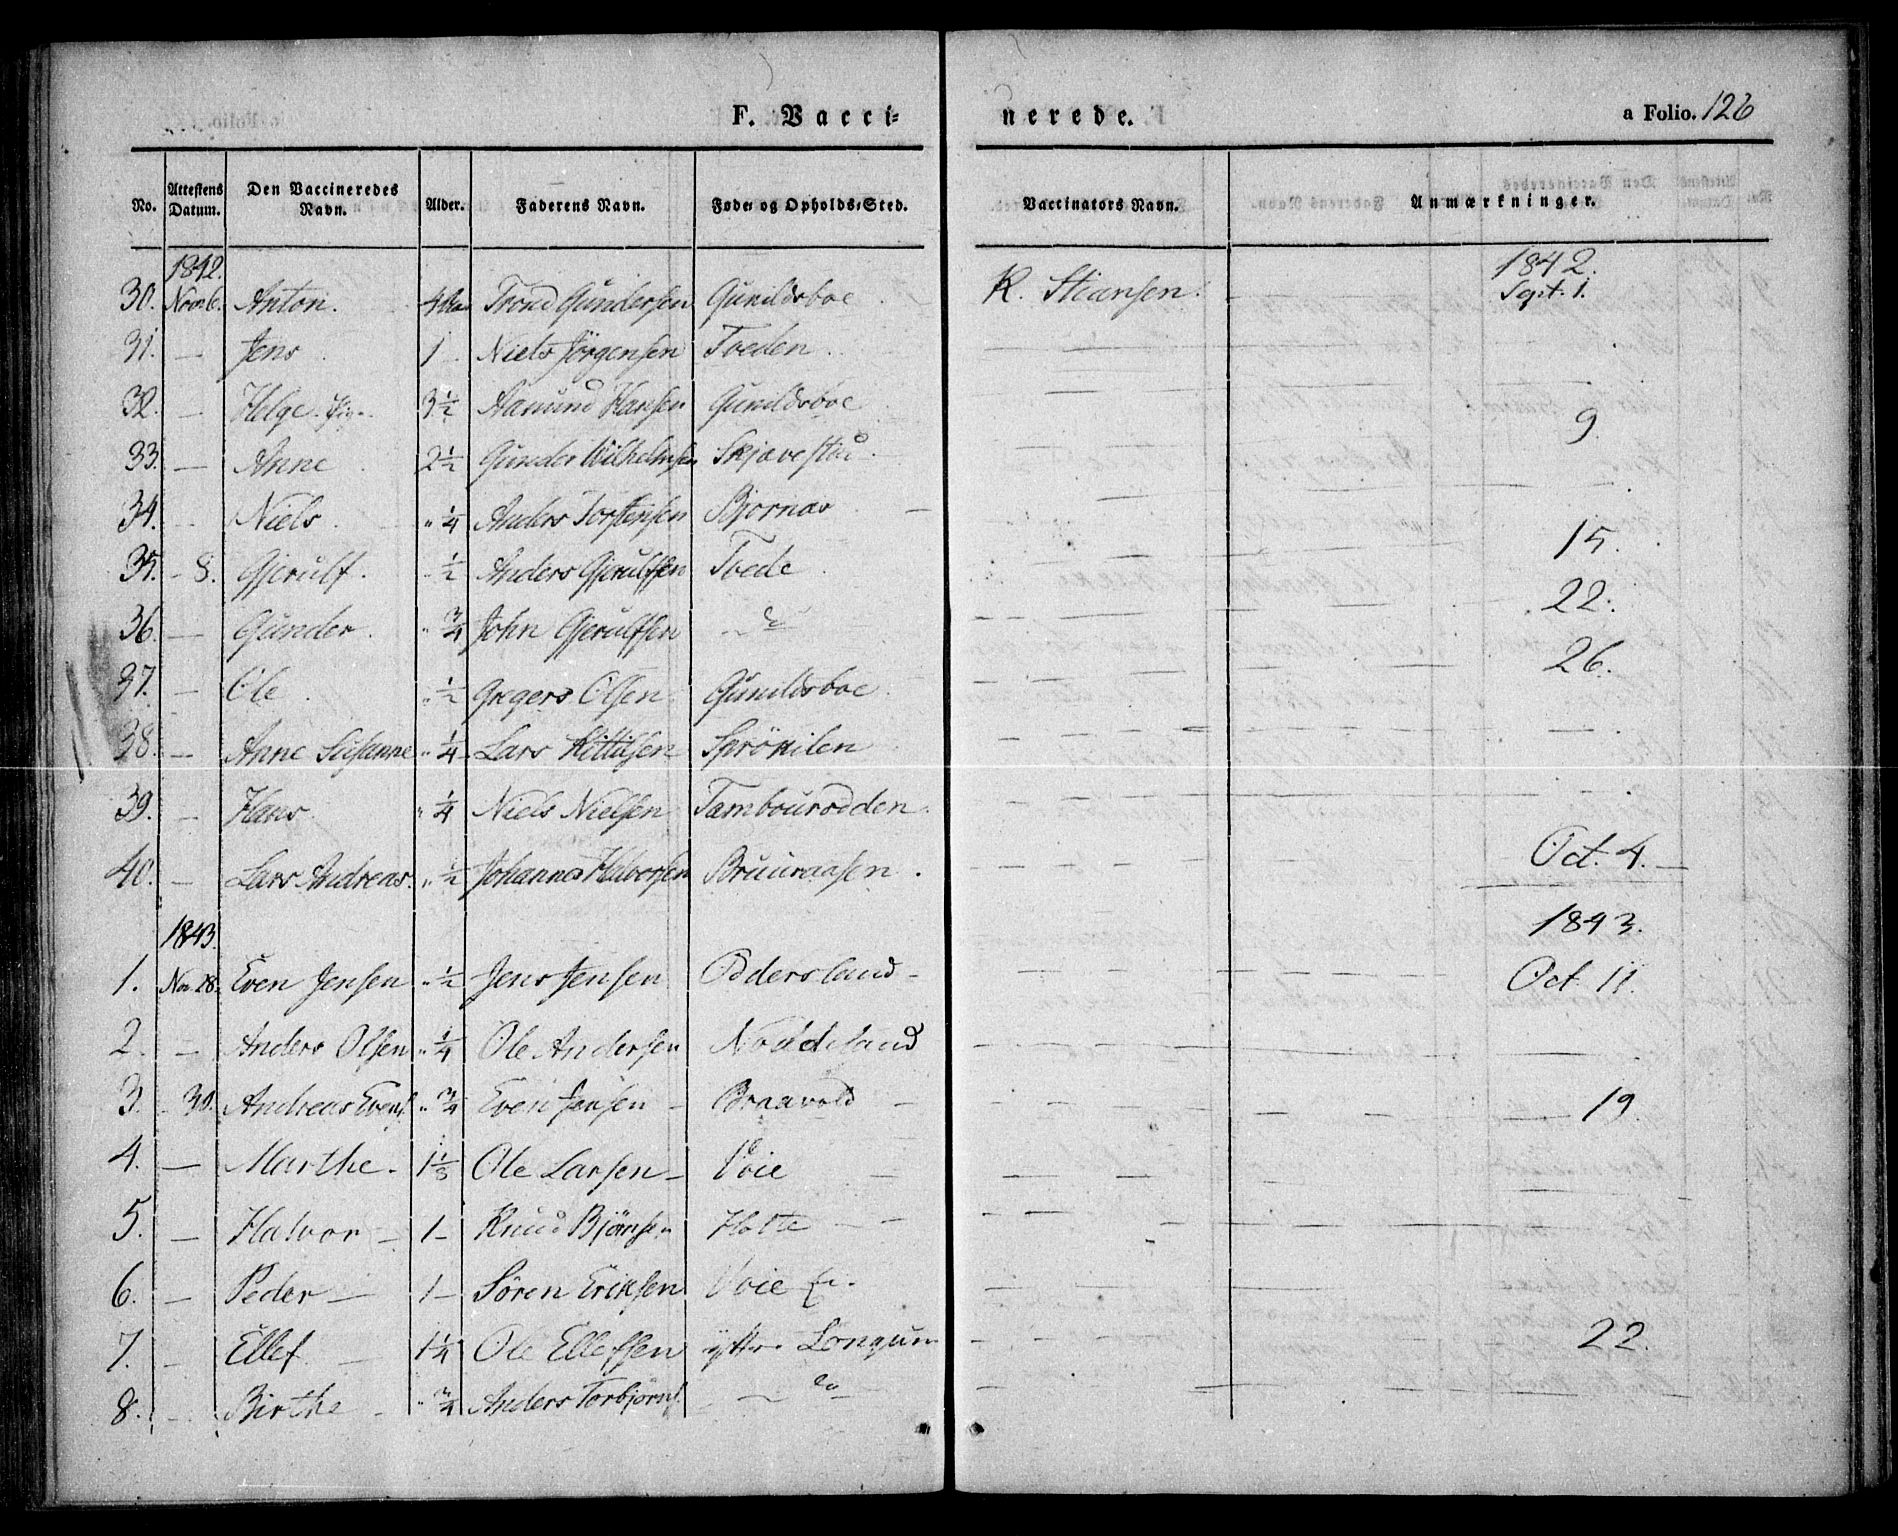 F. Vacci= nerede. a Folio. 126
No. Attestens Datum. Den Vaccineredes Navn. Alder. Faderens Navn. Føde- og Opholds-Sted. Vaccinators Navn. Anmærkninger.
1842. 1842.
30. Novb 6. Anton. Trond Gundersen Gunildsboe R. Stiansen. Sept. 1.
31. — Jens 1 Niels Jörgensen Tveden
32. — Helge 3½ Aanund Hansen Gunildsboe 9.
33. — Anne 2½ Gunder Wilhelmsen
34. Niels " ¼ Anders Torstensen Bjornas 15.
35. - 8. Gjerulf. ½ Anders Gjerulfsen Tvede 22.
36. — Gunder. " ¾ John Gjerulfsen do 26.
37. — Ole " ½ Gregers Olsen Gunildsboe
38. — Anne Susanne " ¼ Lars Kittilsen
39. — Hans " ¼ Niels Nielsen
40. — Lars Andreas. " ½ Johannes Halvorsen Bruuraasen. Oct. 4.
1843. 1843.
1. Nov 28. Even Jensen " ½ Jens Jensen Oddersland Oct. 11.
2. — Anders Olsen " ¼ Ole Andersen
3. - 30. Andreas Evens. " ¾ Even Jensen Braavold 19.
4. — Marthe. Ole Larsen Voie
5. — Halvor 1 Knud Holte
6. — Peder 1 Sören Eriksen Voie
7. - Ellef 1¼ Ole Ellefsen yttre Longum 22.
8. Birthe " ¾ Anders Torbjörns. do